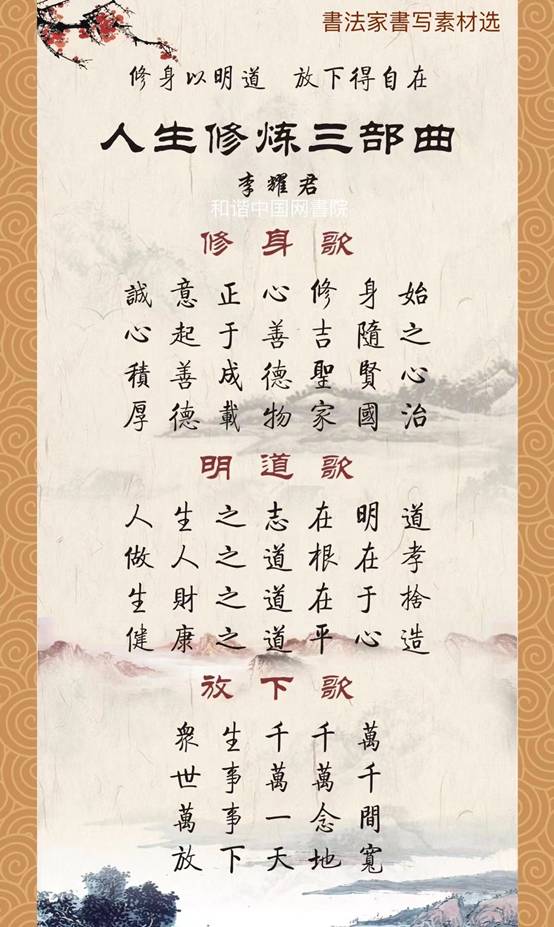 書法家書写素材选
修身以明道 放下得自在
人生修炼三部曲
李耀君
和谐中国网書院
修身歌
誠意正心修身始
心起于善吉隨之
積善成德聖賢心
厚德載物家國治
明道歌
人生之志在明道
做人之道根在孝
生財之道在于捨
健康之道平心造
放下歌
衆生千千萬
世事萬萬千
萬事一念間
放下天地寬